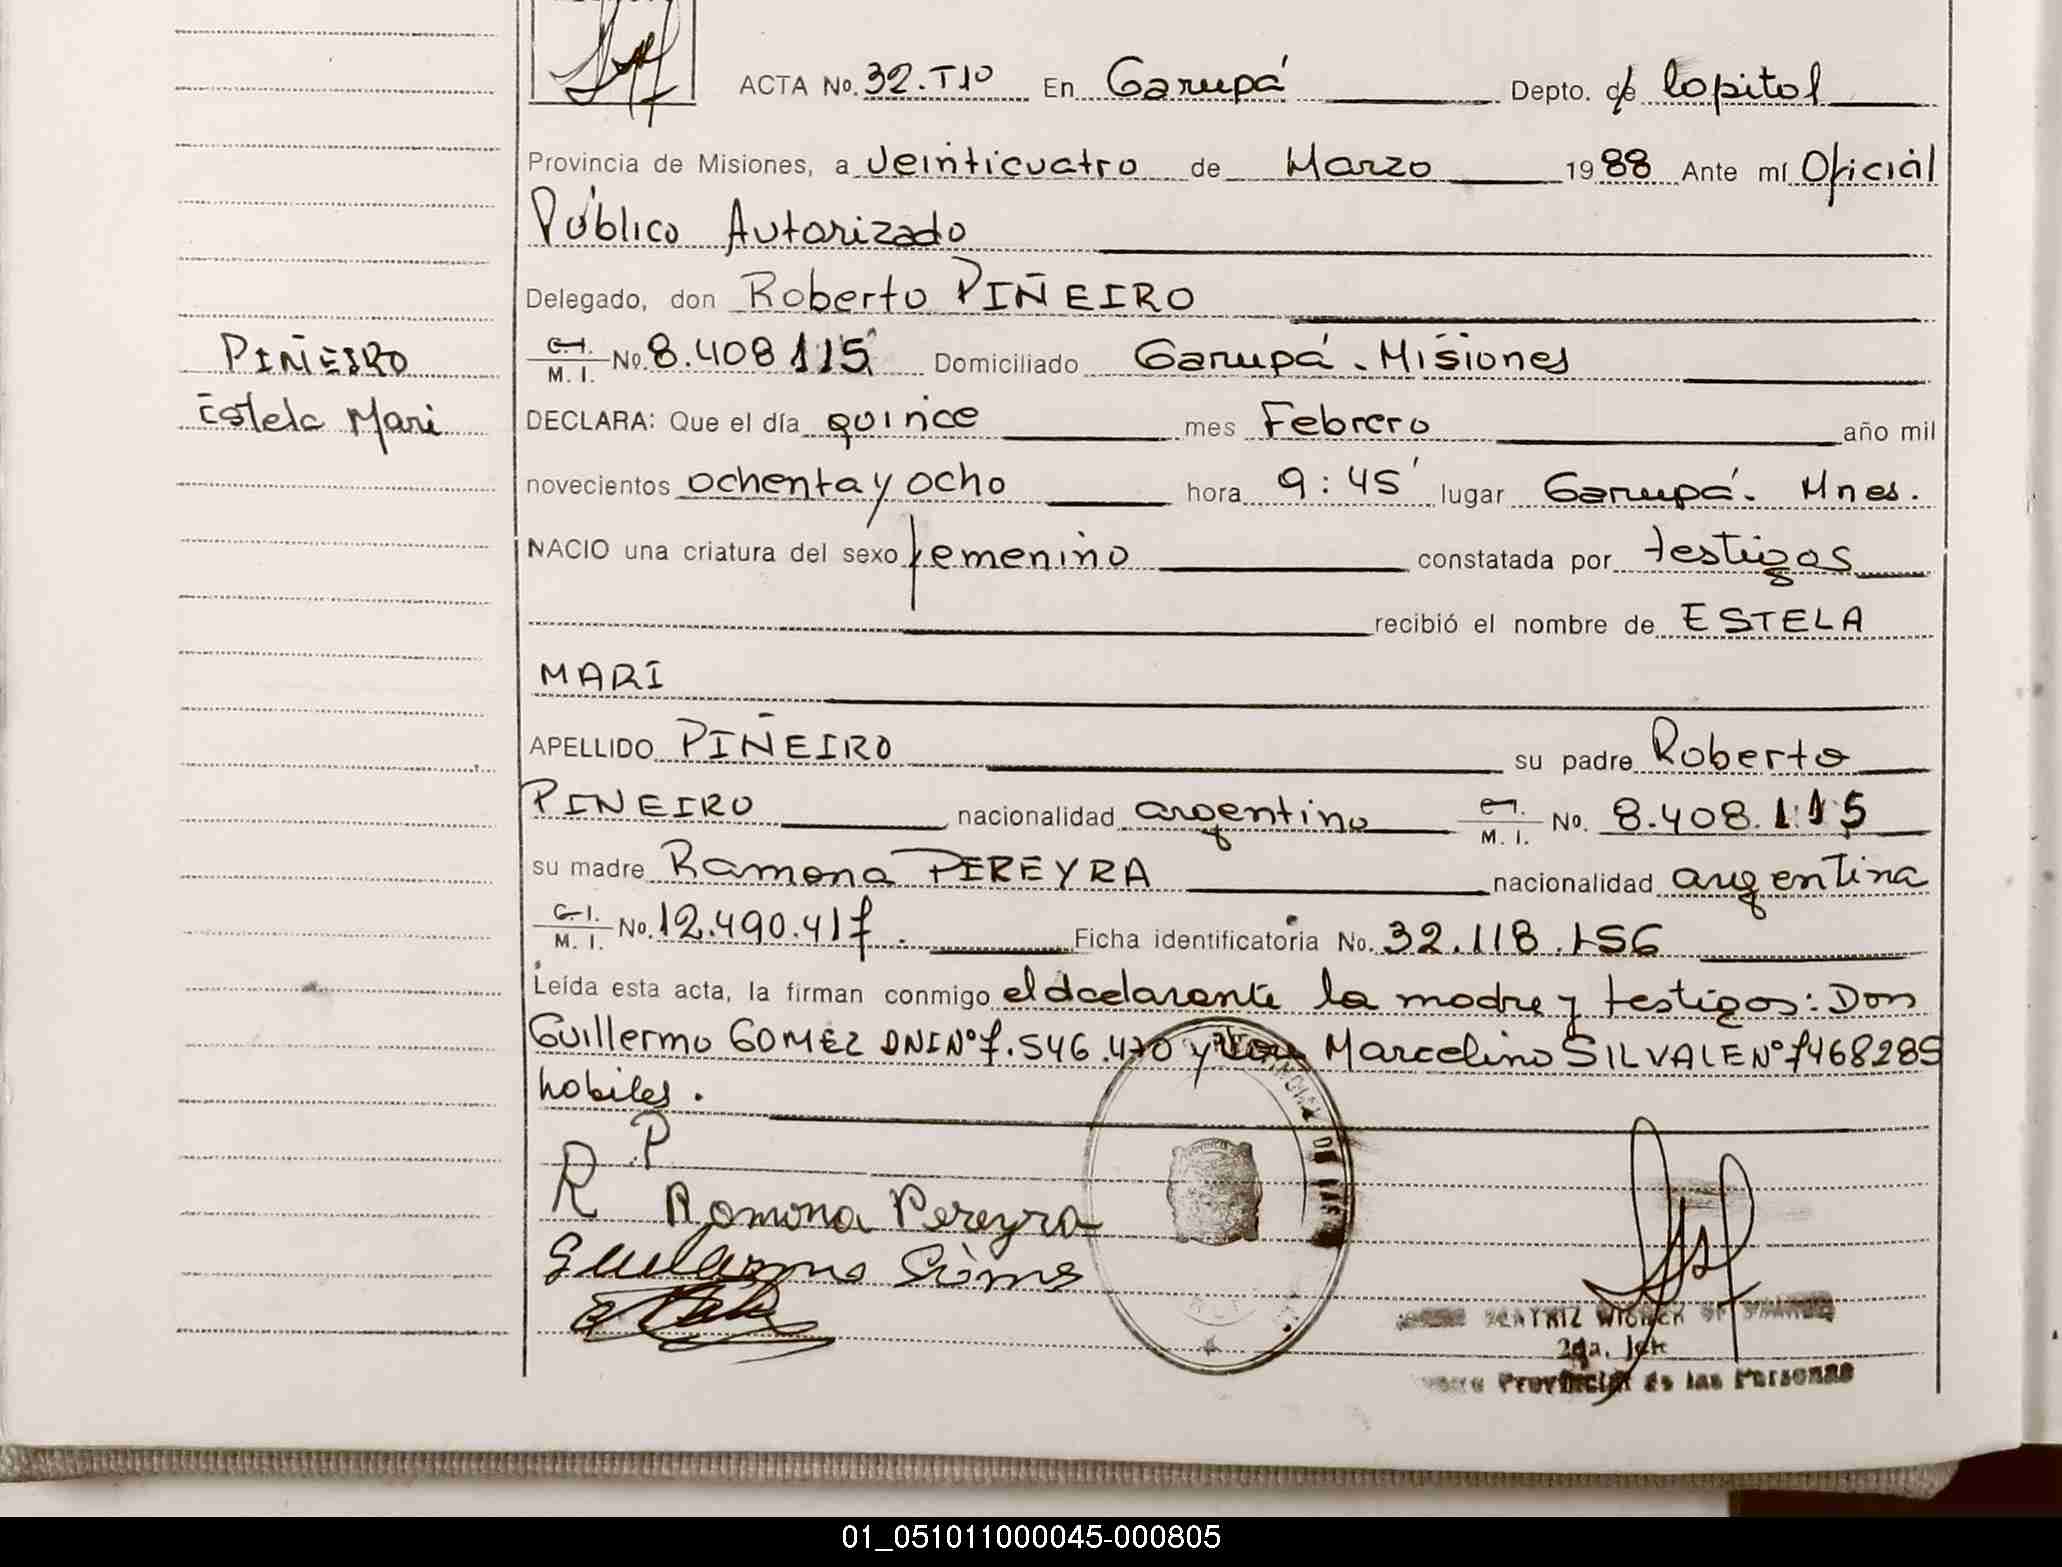 ACTA No. 32.T1º En Garupá Depto. de Capital
Provincia de Misiones, a Veinticuatro de Marzo 1988 Ante mí Oficial
Público Autorizado
Delegado, don Roberto PIÑEIRO
C.I. M. I. No. 8.408 115 Domiciliado Garupá. Misiones
PIÑEIRO
DECLARA: Que el día quince mes Febrero año mil
Estela Mari
novecientos ochenta y ocho hora 9:45' lugar Garupá. Mnes.
NACIO una criatura del sexo femenino constatada por testigos
recibió el nombre de ESTELA
MARI
APELLIDO PIÑEIRO su padre Roberto
PIÑEIRO nacionalidad argentino C.I. M. I. No. 8.408.115
su madre Ramona PEREYRA nacionalidad argentina
C.I. M. I. No. 12.490.417. Ficha identificatoria No. 32.118.156
Leída esta acta, la firman conmigo el declarante la madre y testigos: Don
Guillermo GOMEZ DNI Nº 7.546.470 y Don Marcelino SILVA LE Nº 7468289
hobiles.
R P
Romona Pereyra
BEATRIZ
2da. Jefe
Provincial de las Personas
01_051011000045-000805